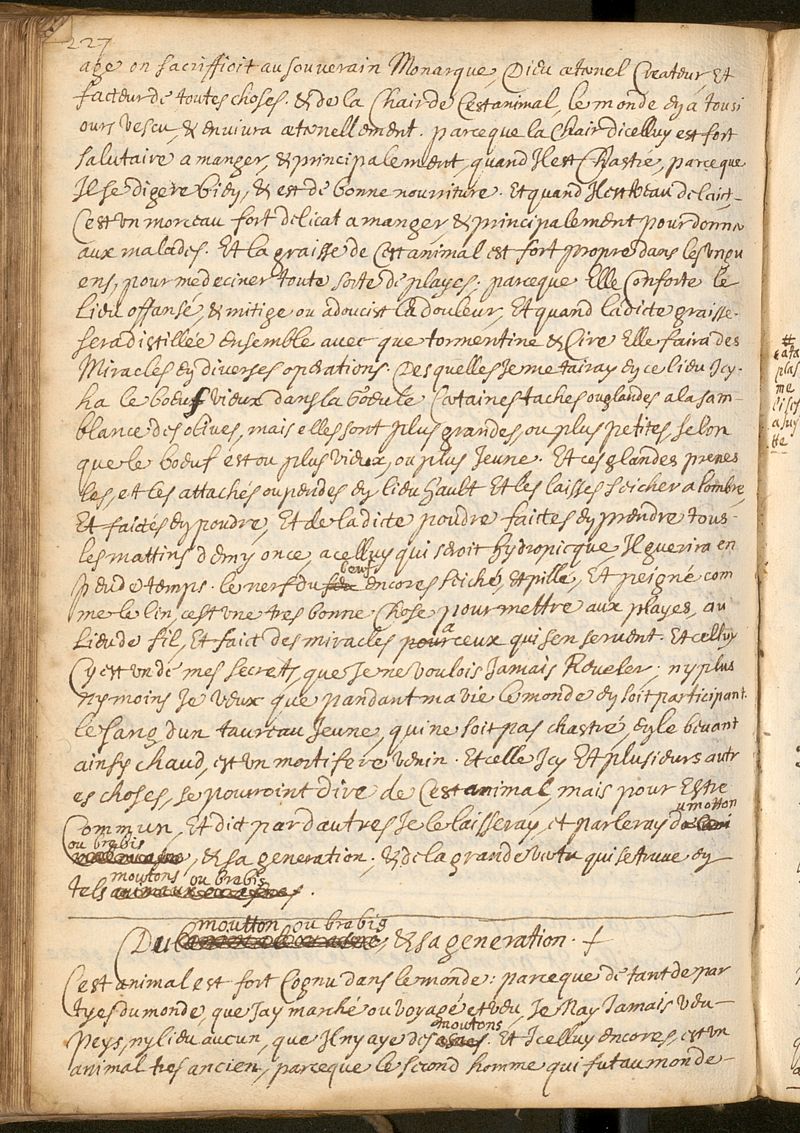 227
age on sacriffioit au souverain Monarque, Dieu æternel Createur, Et
facteur de toutes choses. & de la Chair de C'est animal, le monde en a tousi
ours vescu, & en vivra æternellement. parce que la Chair dicelluy est fort
salutaire a manger, & principalement, quand Il est Chastré, parceque
Il se digere bien, & est de bonne nourriture. Et quand Il est veau de laict,
C'est un morceau fort delicat a manger & principalement pour donne
aux malades. Et la graisse de C'est animal est fort propre dans les ungu
ens, pour medeciner toute sorte de playes. parceque Elle Conforte le
Lieu offansé, & mitige ou adoucist la douleur, Et quand ladicte graisse
sera distillée ensemble avec que tormentine & Cire Elle faira des
Miracles en diverses operations. Desquelles Je me tairay en ce lieu Icy.
ha le boeuf vieux dans la Goeule Certaines taches ou glandes a la sam-
blance des olives, mais elles sont plus grandes, ou plus petites, selon
que le boeuf est ou plus vieux, ou plus Jeune. Et ces glandes prenes
les, et les attachés ou pendes en lieu hault Et les laisses seicher a lombre,
Et faictes en poudre, Et de ladicte poudre faictes en prendre tous
les mattins demy once, a celluy qui seroit hydropicque Il guerira en
peu de temps. le nerf du beuf encores seiché, Et pillé, Et peigné com
me le lin, cest une tres bonne Chose pour mettre aux playes, au
Lieu de fil, Et faict des miracles pour a ceux qui sen servent. Et celluy
Cy est un de mes secrets, que Je ne voulois Jamais Reveler, ny plus
ny moins Je veux que pandant ma vie le monde en soit participant.
le sang d'un taureau Jeune, qui ne soit pas chastré, en le beuvant
ainsy chaud, est un mortifere venin. Et celle Icy Et plusieurs autr
es choses, se pourroint dire de C'est animal, mais pour Estre
Commun, Et dict par dautres Je le laisseray, et parleray du motton
ou brabis, & sa generation. & de la grande vertu qui se truve en
tels moutons ou brabis.
Du moutton ou brabis, & sa generation. +
C'est animal est fort Cognu dans le monde: parce que de tant de par
tyes du monde, que Jay marché ou voyagé et veu, Je Nay Jamais veu
Peys, ny lieu aucun, que Il ny aye des moutons. Et Icelluy encores, est un
animal tres ancien, parce que le second homme qui fut au monde
#
plas
me